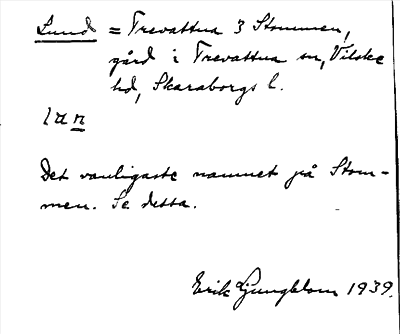 Lund = Trevattna 3 Stommen,
gård i Trevattna sn, Vilske
hd, Skaraborgs l.
Det vanligaste namnet på Stom-
men. Se detta.
Erik Ljungblom 1939.